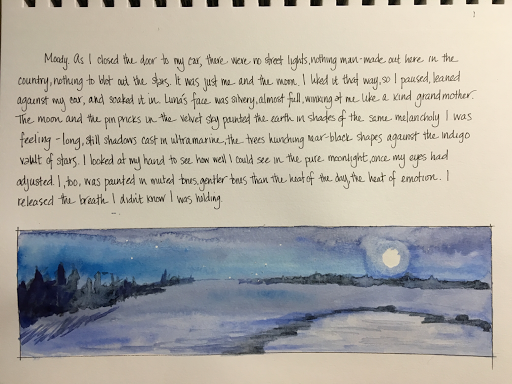 Moody. As I closed the door to my car, there were no street lights, nothing man-made out here in the
country, nothing to blot out the stars. It was just me and the moon. I liked it that way, so I paused, leaned
against my car, and soaked it in. Luna's face was silvery, almost full, winking at me like a kind grandmother.
The moon and the pin pricks in the velvet sky painted the earth in shades of the same melancholy I was
feeling - long, still shadows cast in ultramarine, the trees hunching near-black shapes against the indigo
vault of stars. I looked at my hand to see how well I could see in the pure moonlight, once my eyes had
adjusted. I, too, was painted in muted tones, gentler tones than the heat of the day, the heat of emotion. I
released the breath I didn't know I was holding.